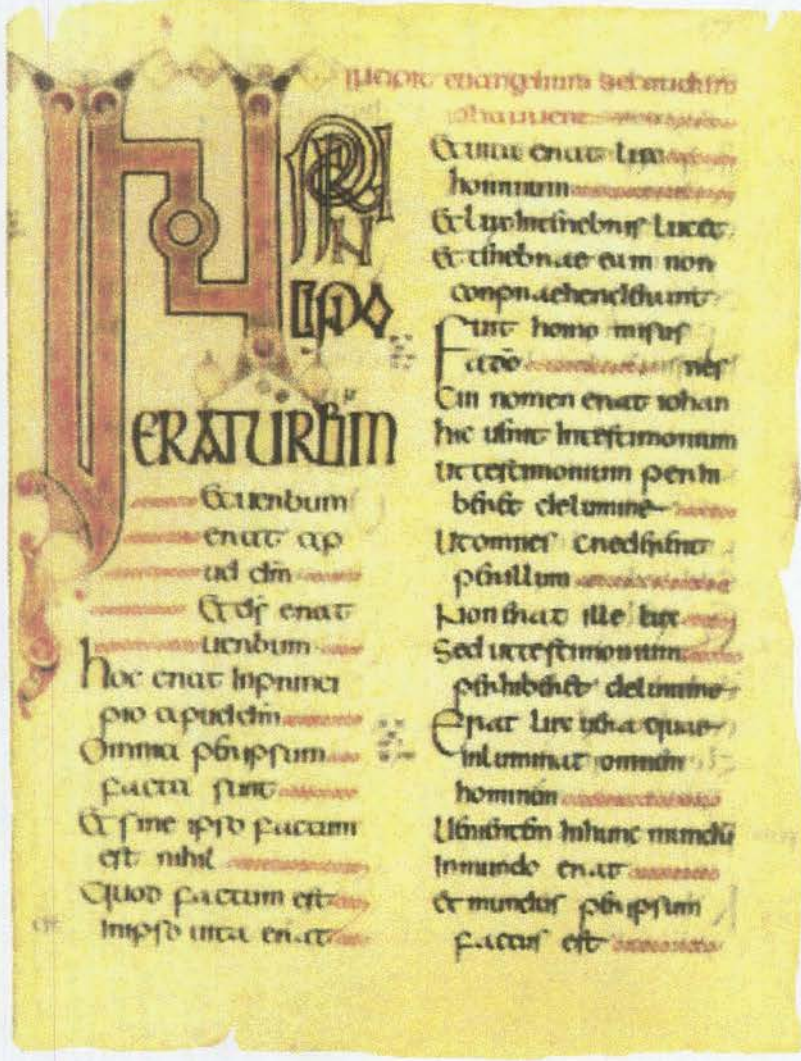 Incipit euangelium secundum
IN PRI
N
CIPIO
ERATUERBUM
Etuerbum
erat ap
ud dm
Et ds erat
uerbum
hoc erat inprinci
pio apuddm
Omnia peripsum
facta sunt
Et sine ipso factum
est nihil
Quod factum est
inipso uita erat
Etuita erat lux
hominum
Et lux intenebris lucet
Et tenebrae eam non
conpraehenderunt
Fuit homo misus
ado nes
Cui nomen erat iohan
hic uenit intestimonium
Ut testimonium perhi
beret delumine
Utomnes crederent
perillum
Non erat ille lux
Sed uttestimonium
perhiberet delumine
Erat lux uera quae
inluminat omnem
hominem
Uenientem inhunc mundū
Inmundo erat
et mundus peripsum
factus est